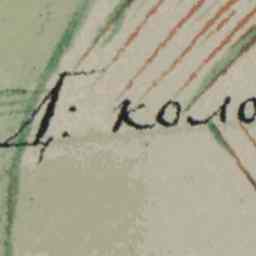 Д: коло